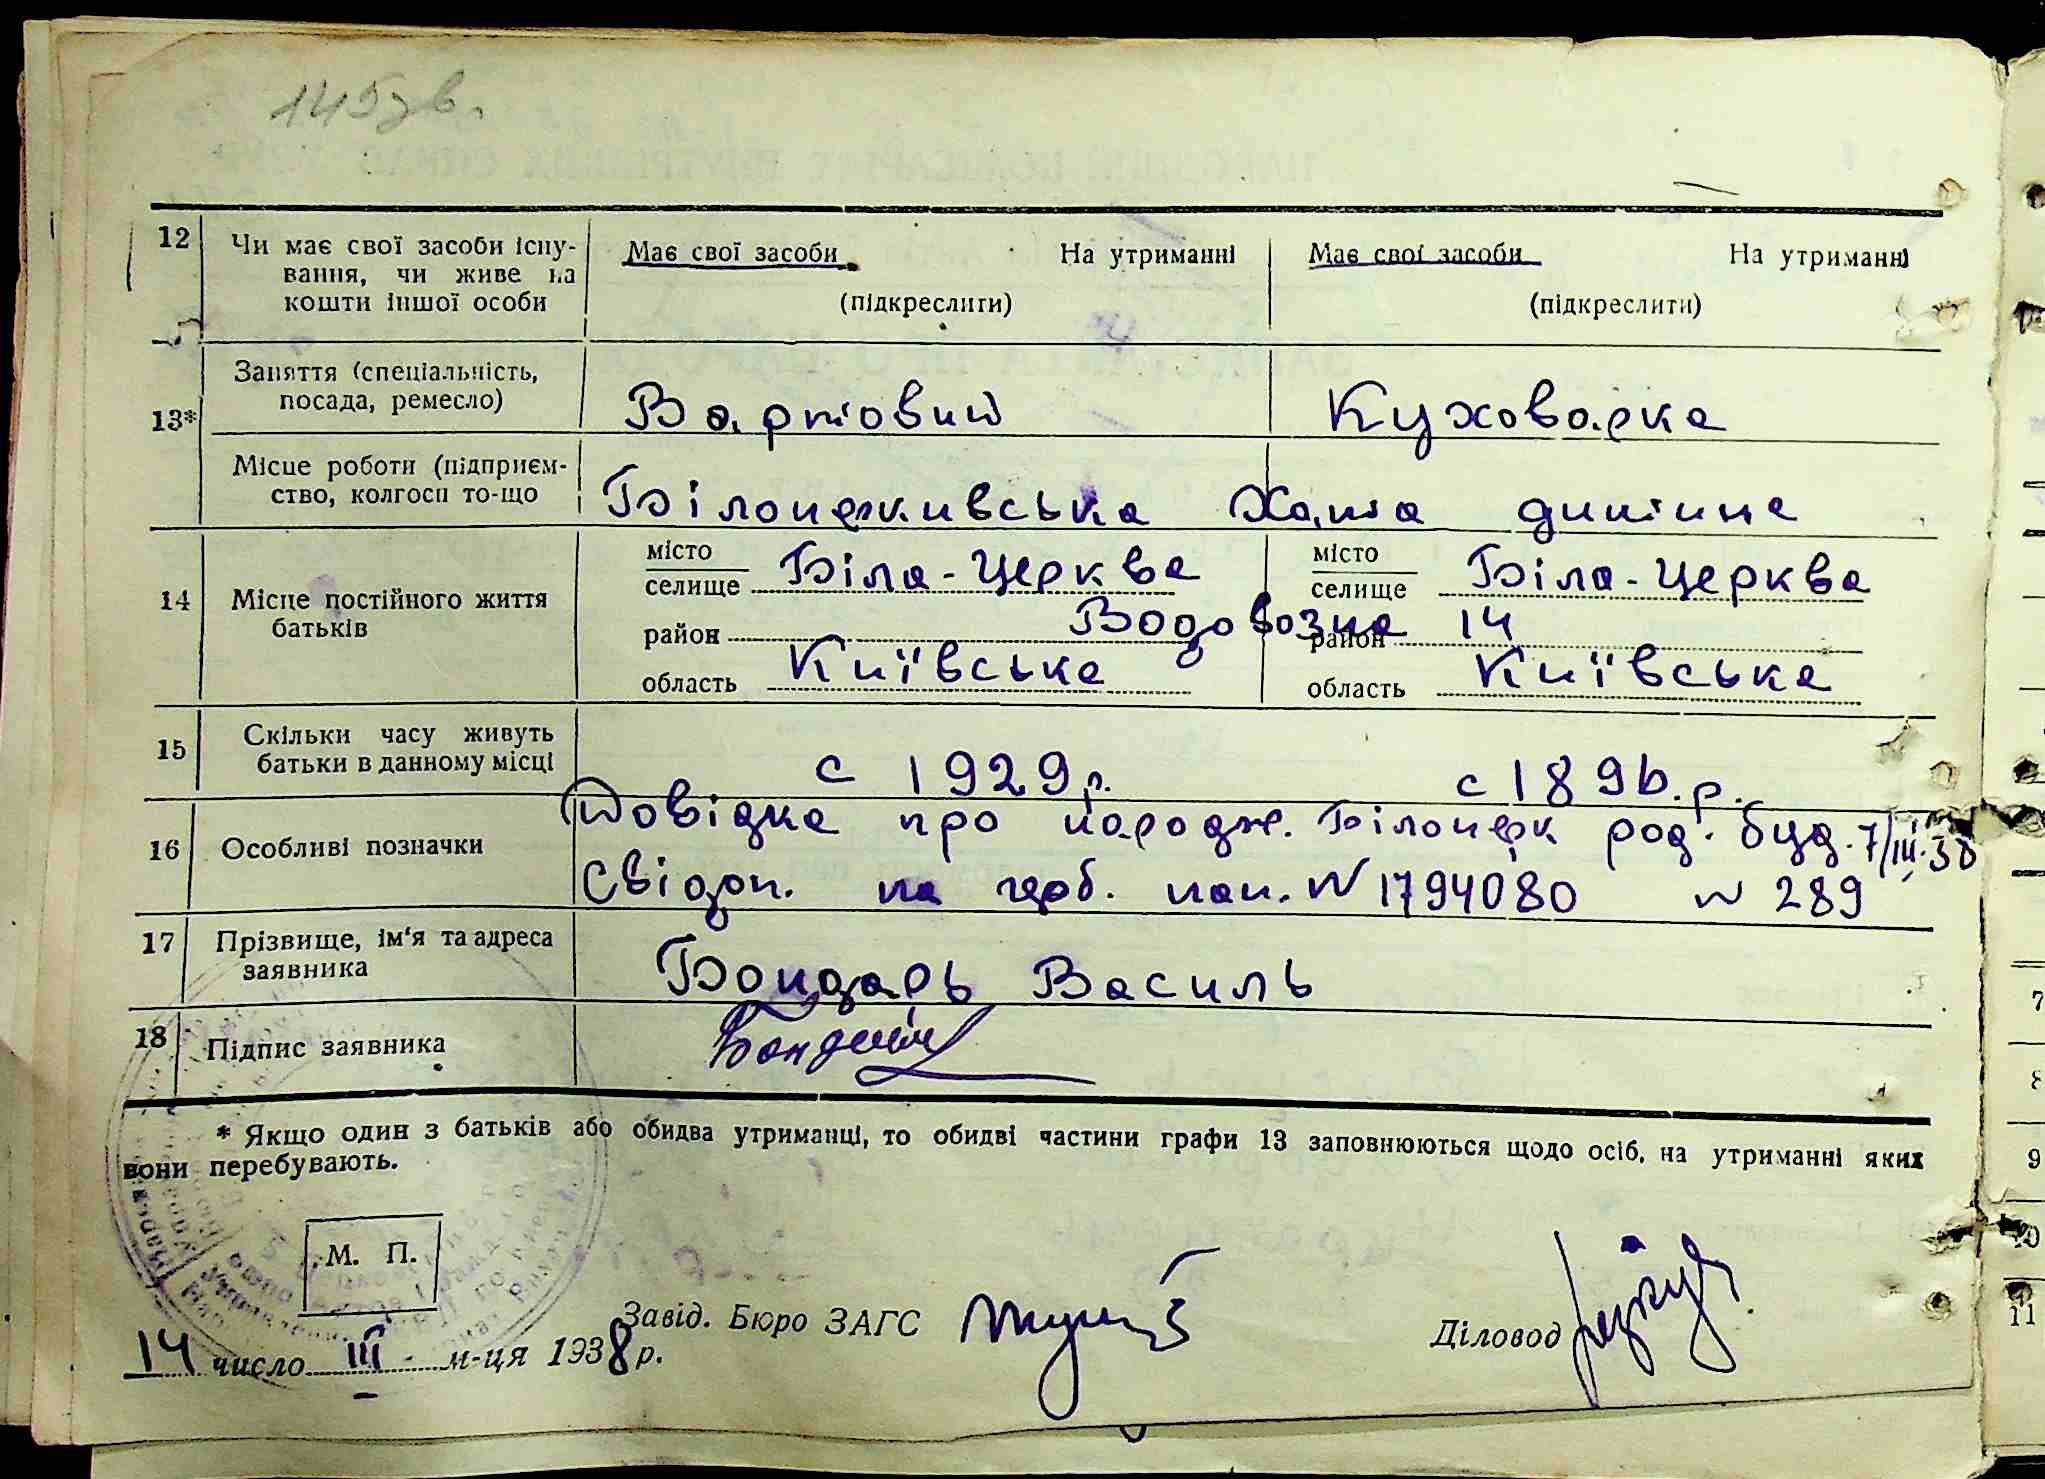 145зв.
12 Чи має свої засоби існу- Має свої засоби На утриманні Має свої засоби На утриманні
вання, чи живе на
кошти іншої особи (підкреслити) (підкреслити)
13* Заняття (спеціальність,
посада, ремесло) Вартовий Куховарка
Місце роботи (підприєм-
ство, колгосп то-що Білоцерківська Хата дитина
14 Місце постійного життя
батьків
місто
селище Біла-Церква місто
селище Біла-Церква
район Водовозна 14 район
область Київська область Київська
15 Скільки часу живуть
батьки в данному місці с 1929 р. с 1896.р.
16 Особливі позначки Довідка про народж. Білоцерк род. буд. 7/III.38
Свідоц. на герб. пап. N 1794080 N 289
17 Прізвище, ім'я та адреса
заявника Бондарь Василь
18 Підпис заявника
* Якщо один з батьків або обидва утриманці, то обидві частини графи 13 заповнюються щодо осіб, на утриманні яких
вони перебувають.
М. П.
Завід. Бюро ЗАГС Діловод
14 число III м-ця 1938 р.
7
8
9
10
11